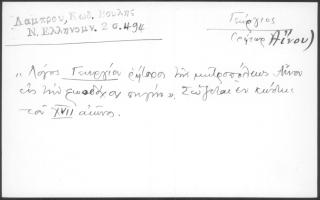 Λάμπρου, Κωδ. Βουλῆς
Ν. Ἑλληνομν. 2 σ. 494
Γεώργιος
(ρήτωρ Αἴνου)
"Λόγος Γεωργίου ρήτορος τῆς μητροπόλεως Αἴνου
εἰς τὴν ζωοδόχον πηγήν". Σώζεται ἐν κώδικι
τοῦ XVII αἰῶνος.